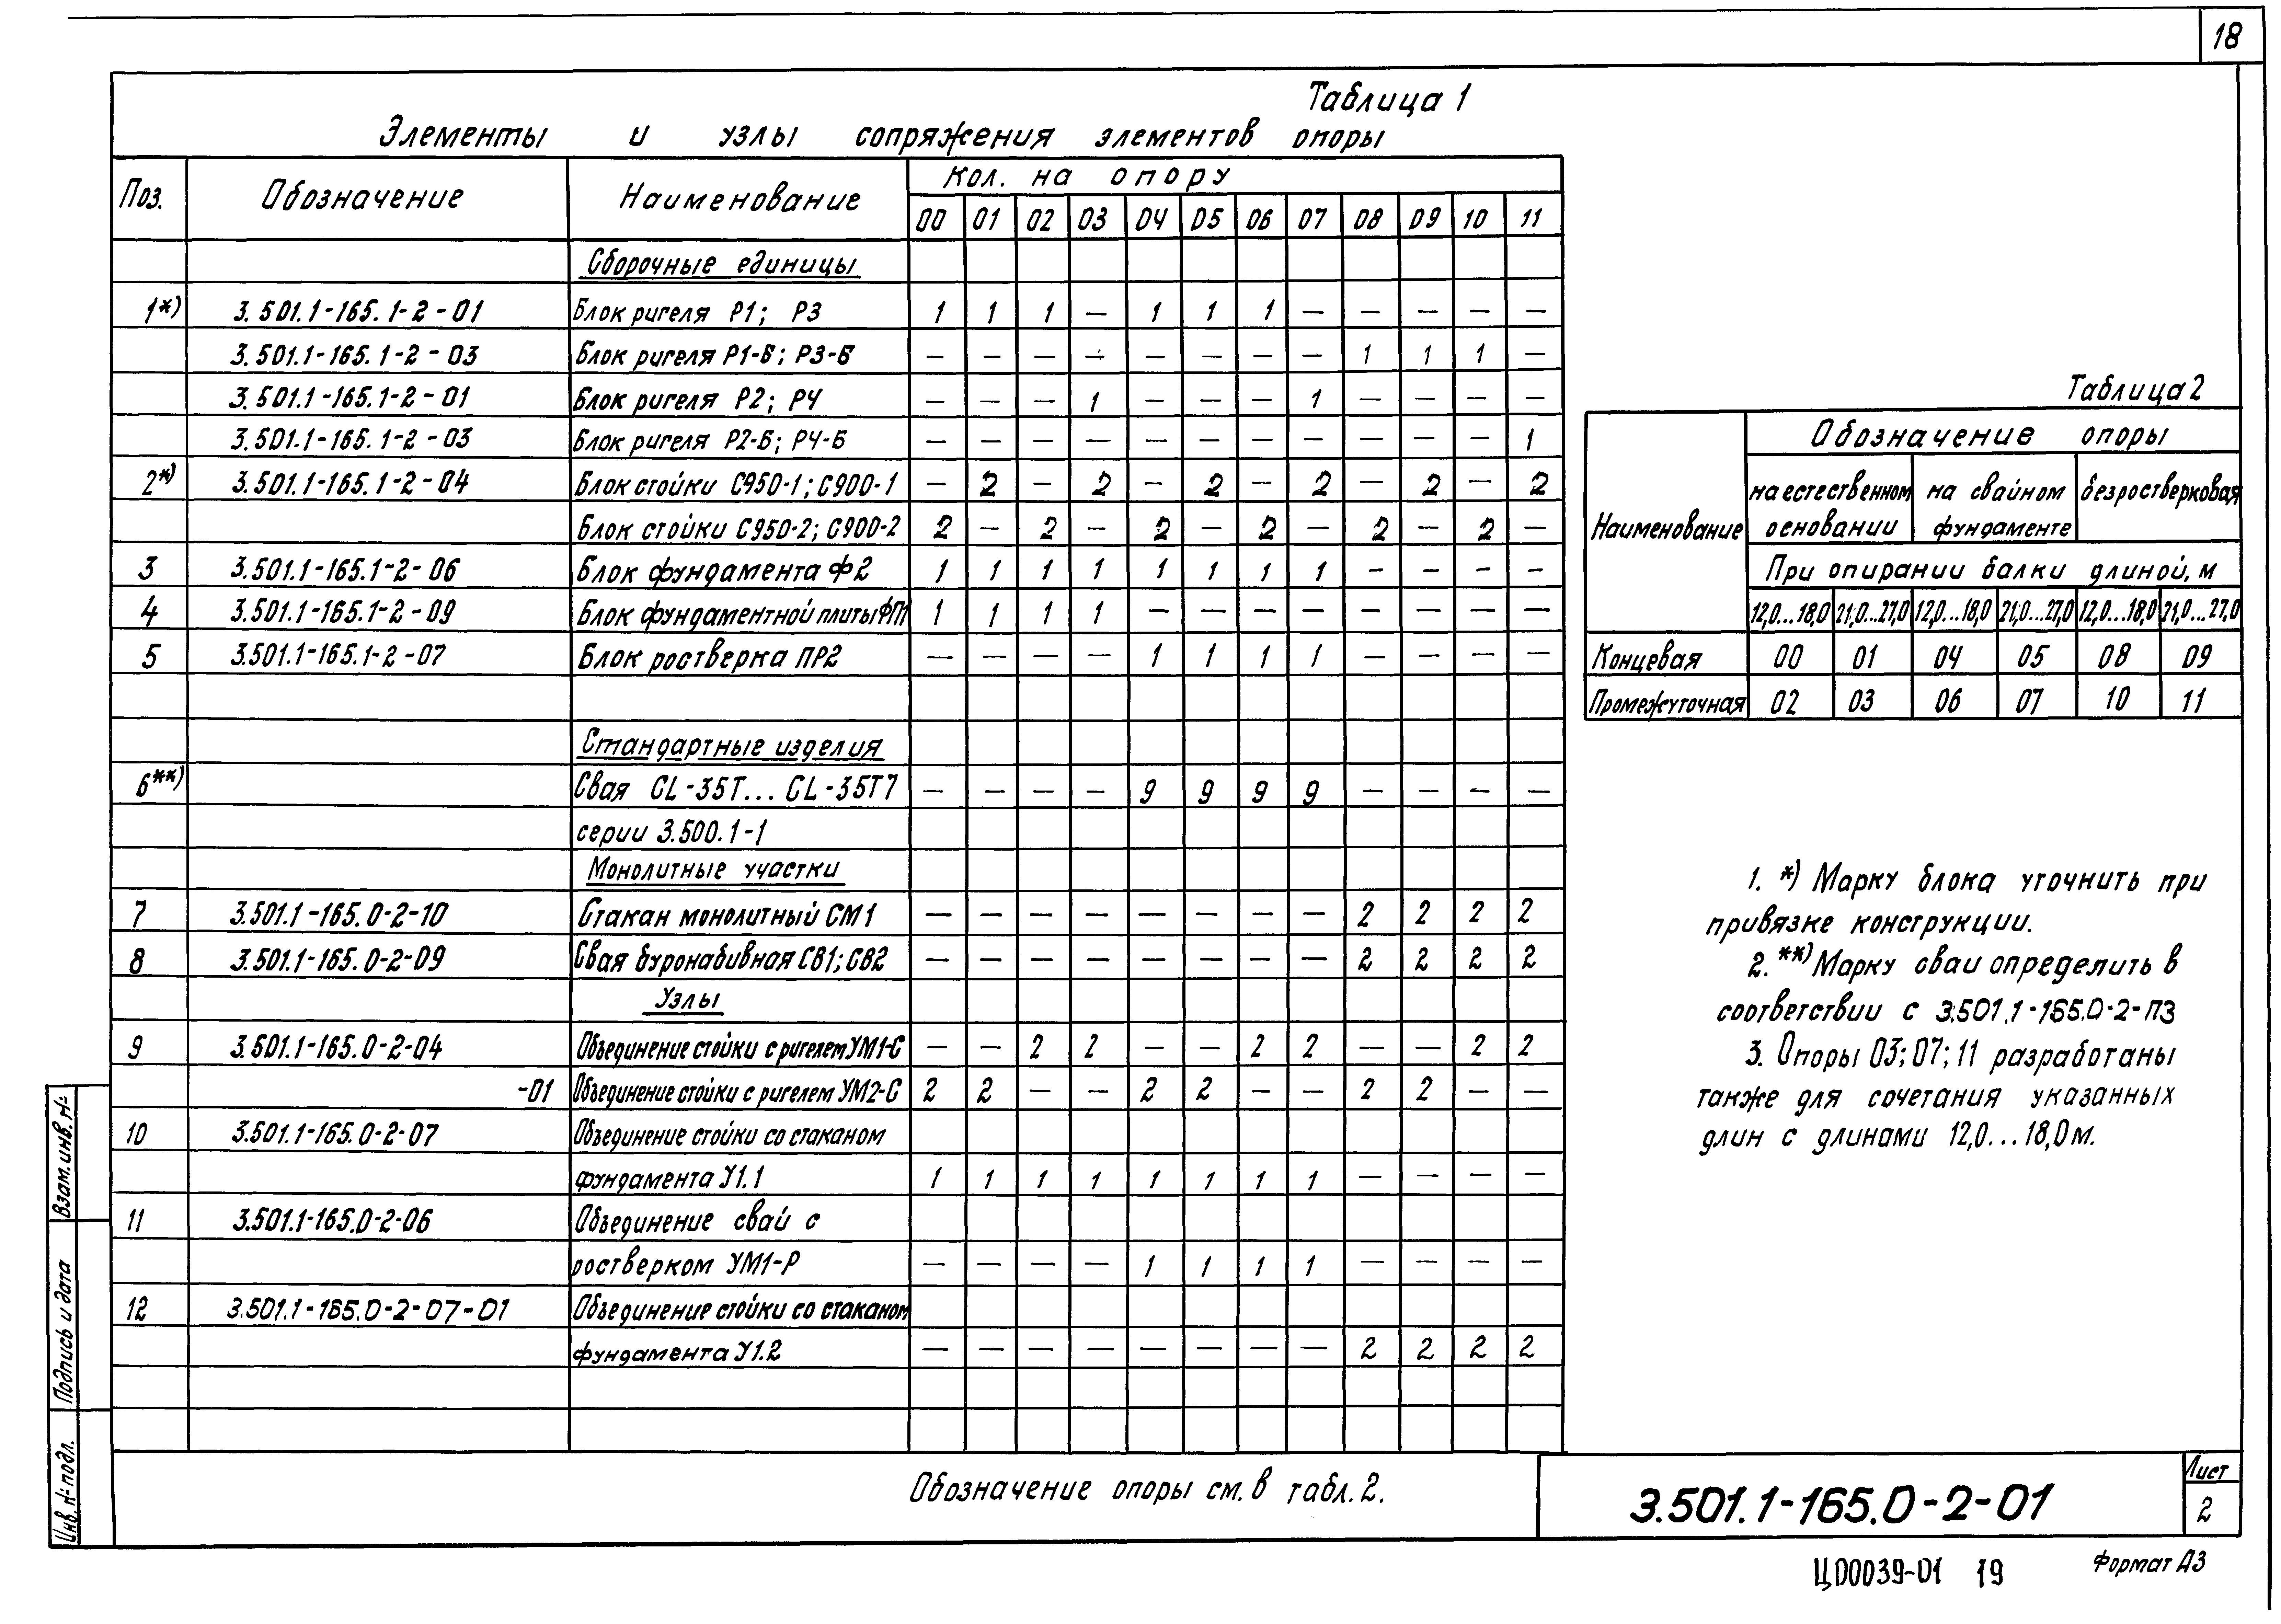 18
Таблица 1
Элементы и узлы сопряжения элементов опоры
Поз. Обозначение Наименование Кол. на опору
00 01 02 03 04 05 06 07 08 09 10 11
Сборочные единицы
1*) 3.501.1-165.1-2-01 Блок ригеля Р1; Р3 1 1 1 — 1 1 1 — — — — —
3.501.1-165.1-2-03 Блок ригеля Р1-Б; Р3-Б — — — — — — — — 1 1 1 —
3.501.1-165.1-2-01 Блок ригеля Р2; Р4 — — — 1 — — — 1 — — — —
3.501.1-165.1-2-03 Блок ригеля Р2-Б; Р4-Б — — — — — — — — — — — 1
2*) 3.501.1-165.1-2-04 Блок стойки С950-1; С900-1 — 2 — 2 — 2 — 2 — 2 — 2
Блок стойки С950-2; С900-2 2 — 2 — 2 — 2 — 2 — 2 —
3 3.501.1-165.1-2-06 Блок фундамента Ф2 1 1 1 1 1 1 1 1 — — — —
4 3.501.1-165.1-2-09 Блок фундаментной плиты ФП1 1 1 1 1 — — — — — — — —
5 3.501.1-165.1-2-07 Блок ростверка ПР2 — — — — 1 1 1 1 — — — —
Стандартные изделия
6**) Свая СL-35Т...СL-35Т7 — — — — 9 9 9 9 — — — —
серии 3.500.1-1
Монолитные участки
7 3.501.1-165.0-2-10 Стакан монолитный СМ1 — — — — — — — — 2 2 2 2
8 3.501.1-165.0-2-09 Свая буронабивная СВ1; СВ2 — — — — — — — — 2 2 2 2
Узлы
9 3.501.1-165.0-2-04 Объединение стойки с ригелем УМ1-С — — 2 2 — — 2 2 — — 2 2
-01 Объединение стойки с ригелем УМ2-С 2 2 — — 2 2 — — 2 2 — —
10 3.501.1-165.0-2-07 Объединение стойки со стаканом
фундамента У1.1 1 1 1 1 1 1 1 1 — — — —
11 3.501.1-165.0-2-06 Объединение свай с
ростверком УМ1-Р — — — — 1 1 1 1 — — — —
12 3.501.1-165.0-2-07-01 Объединение стойки со стаканом
фундамента У1.2 — — — — — — — — 2 2 2 2
Обозначение опоры см. в табл. 2.
Таблица 2
Наименование Обозначение опоры
на естественном основании на свайном фундаменте безростверковая
При опирании балки длиной, м
12,0...18,0 21,0...27,0 12,0...18,0 21,0...27,0 12,0...18,0 21,0...27,0
Концевая 00 01 04 05 08 09
Промежуточная 02 03 06 07 10 11
1. *) Марку блока уточнить при
привязке конструкции.
2. **) Марку сваи определить в
соответствии с 3.501.1-165.0-2-ПЗ
3. Опоры 03; 07; 11 разработаны
также для сочетания указанных
длин с длинами 12,0...18,0 м.
Взам. инв. №
Подпись и дата
Инв. № подл.
3.501.1-165.0-2-01
Лист
2
ЦД0039-01 19
Формат А3